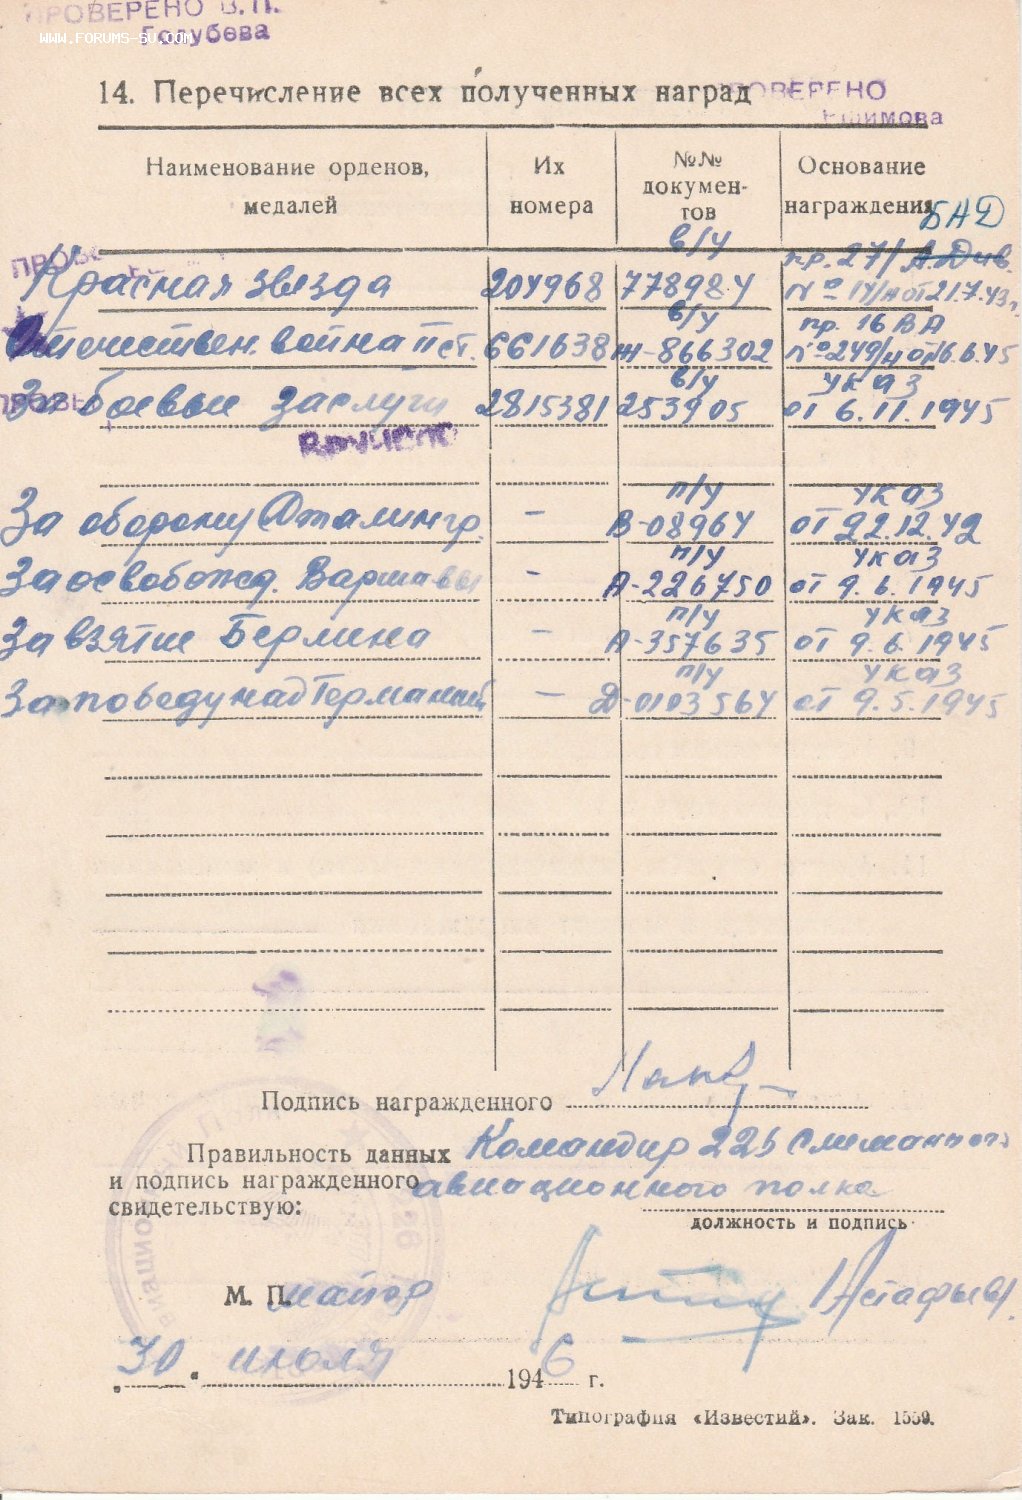 ПРОВЕРЕНО В.П.
Голубева
WWW.FORUMS-SU.COM
14. Перечисление всех полученных наград
ПРОВЕРЕНО
Наименование орденов, медалей
Их номера
№№ документов
Основание награждения
БАД
ПРОВЕ
в/у
пр. 27/ А.Див.
Красная звезда 204968 778984 № 14/н от 21.7.43г.
в/у пр. 16 ВА
Отечествен. война II ст. 661638 Ж-866302 № 249/н от 16.6.45
в/у указ
ПРОВЕ
За боевые заслуги 2815381 253905 от 6.11.1945
ВРУЧЕНО
п/у указ
За оборону Сталингр. — В-08964 от 22.12.42
п/у указ
За освобожд. Варшавы — А-226750 от 9.6.1945
п/у указ
За взятие Берлина — А-357635 от 9.6.1945
п/у указ
За победу над Германией — Д-0103564 от 9.5.1945
Подпись награжденного
Правильность данных Командир
и подпись награжденного авиационного полка
свидетельствую:
должность и подпись
М. П. майор /Астафьев/
„30" июля 1946 г.
Типография «Известий». Зак. 1559.